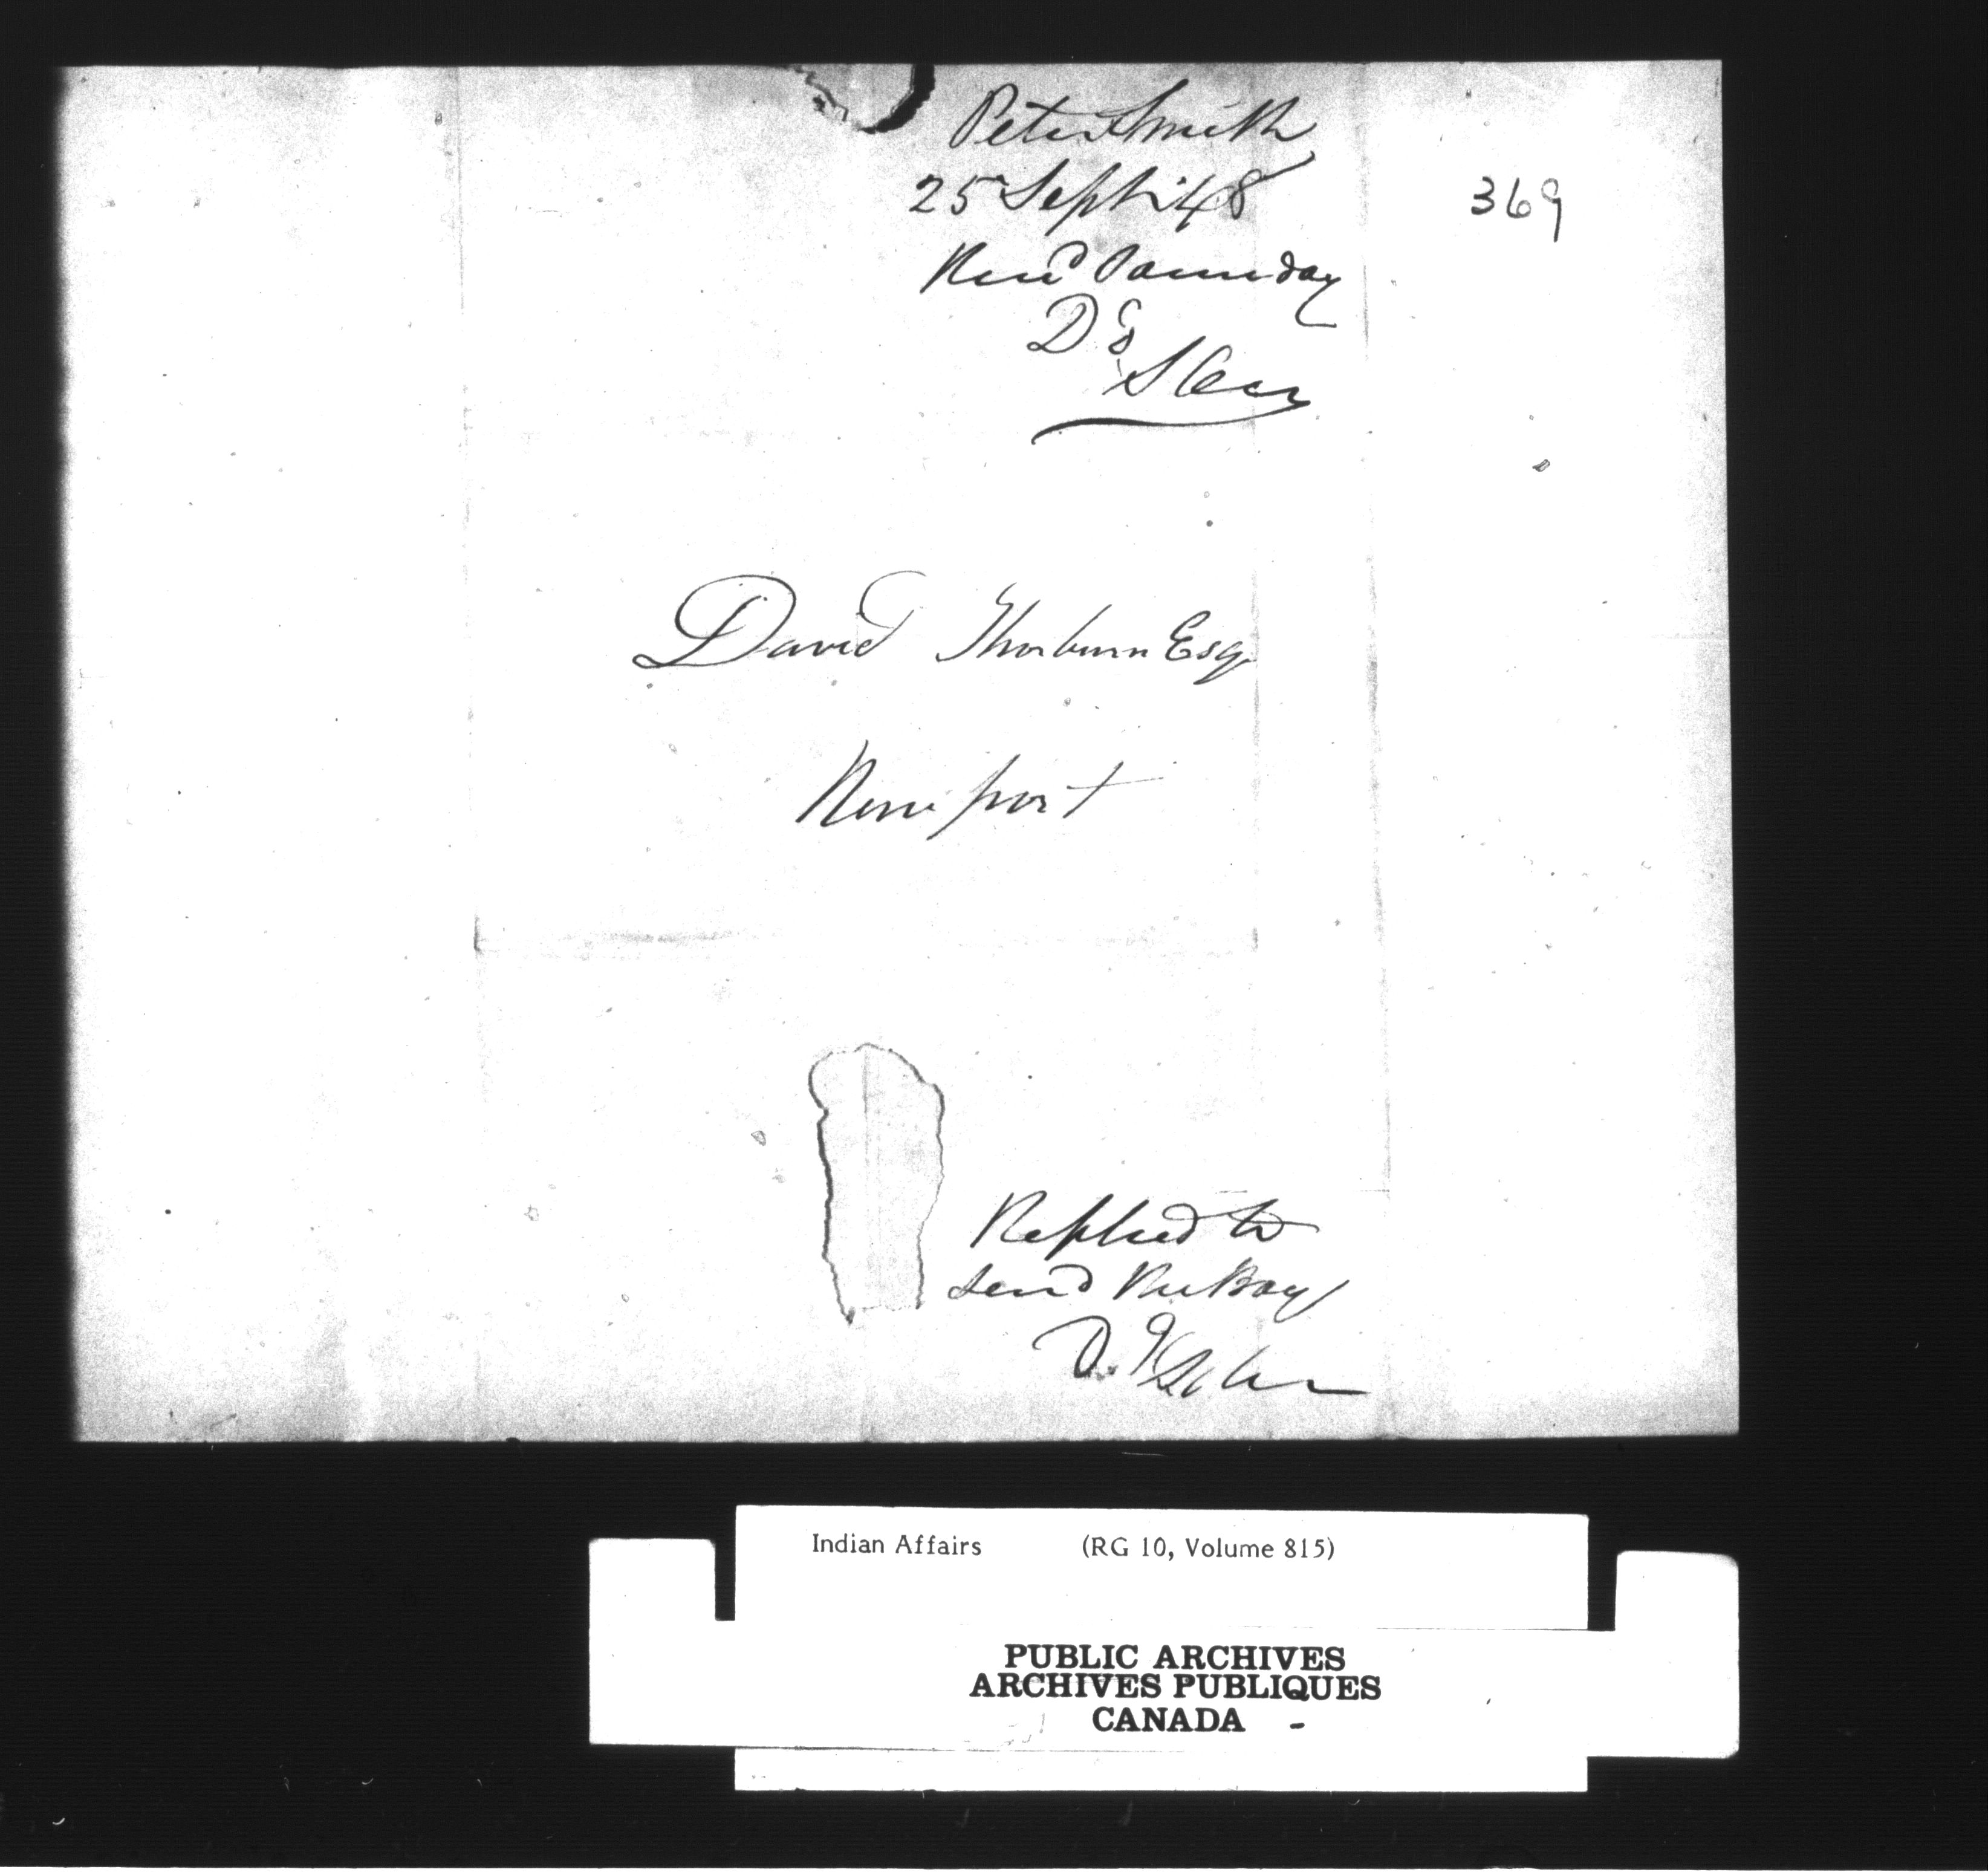 Peter Smith
25 Sept '48
Recd same day
369
David Thorburn Esqr
Newport
Replied to
same day
Indian Affairs (RG 10, Volume 815)
PUBLIC ARCHIVES
ARCHIVES PUBLIQUES
CANADA